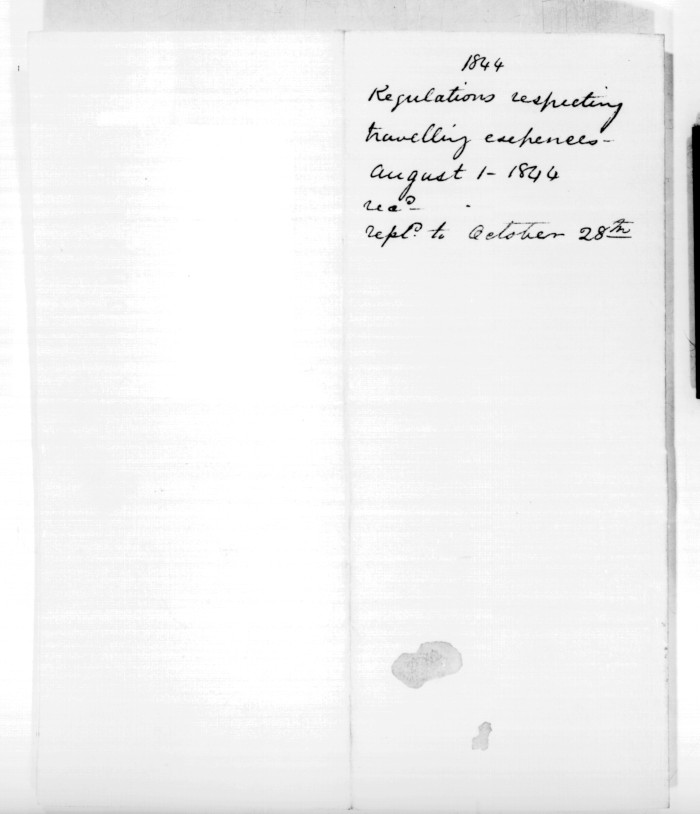 1844
Regulations respecting
travelling expences-
August 1- 1844
recd-
repld. to October 28th